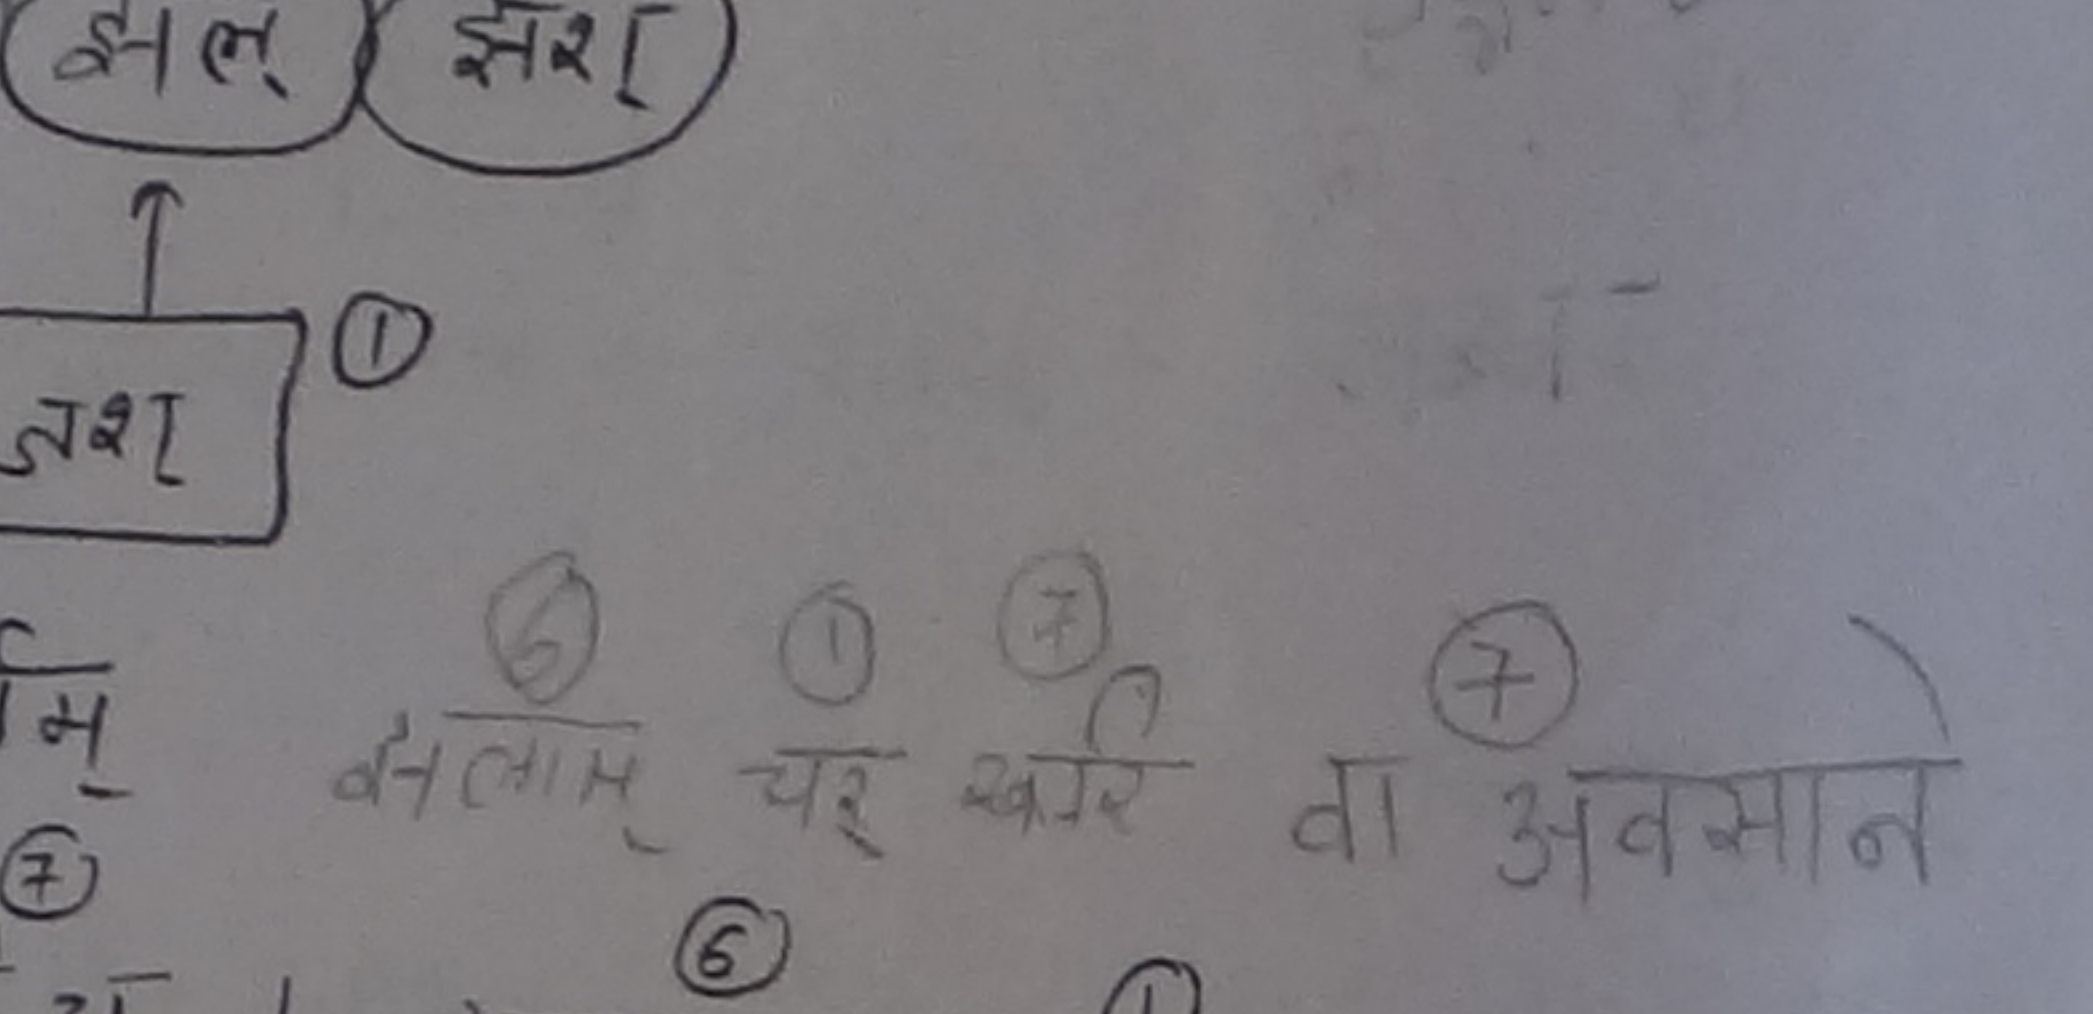 झल् झश्
①
जश्
⑥ ① ⑦ ⑦
झलाम् चर् खरि वा अवसाने
⑦
⑥
①